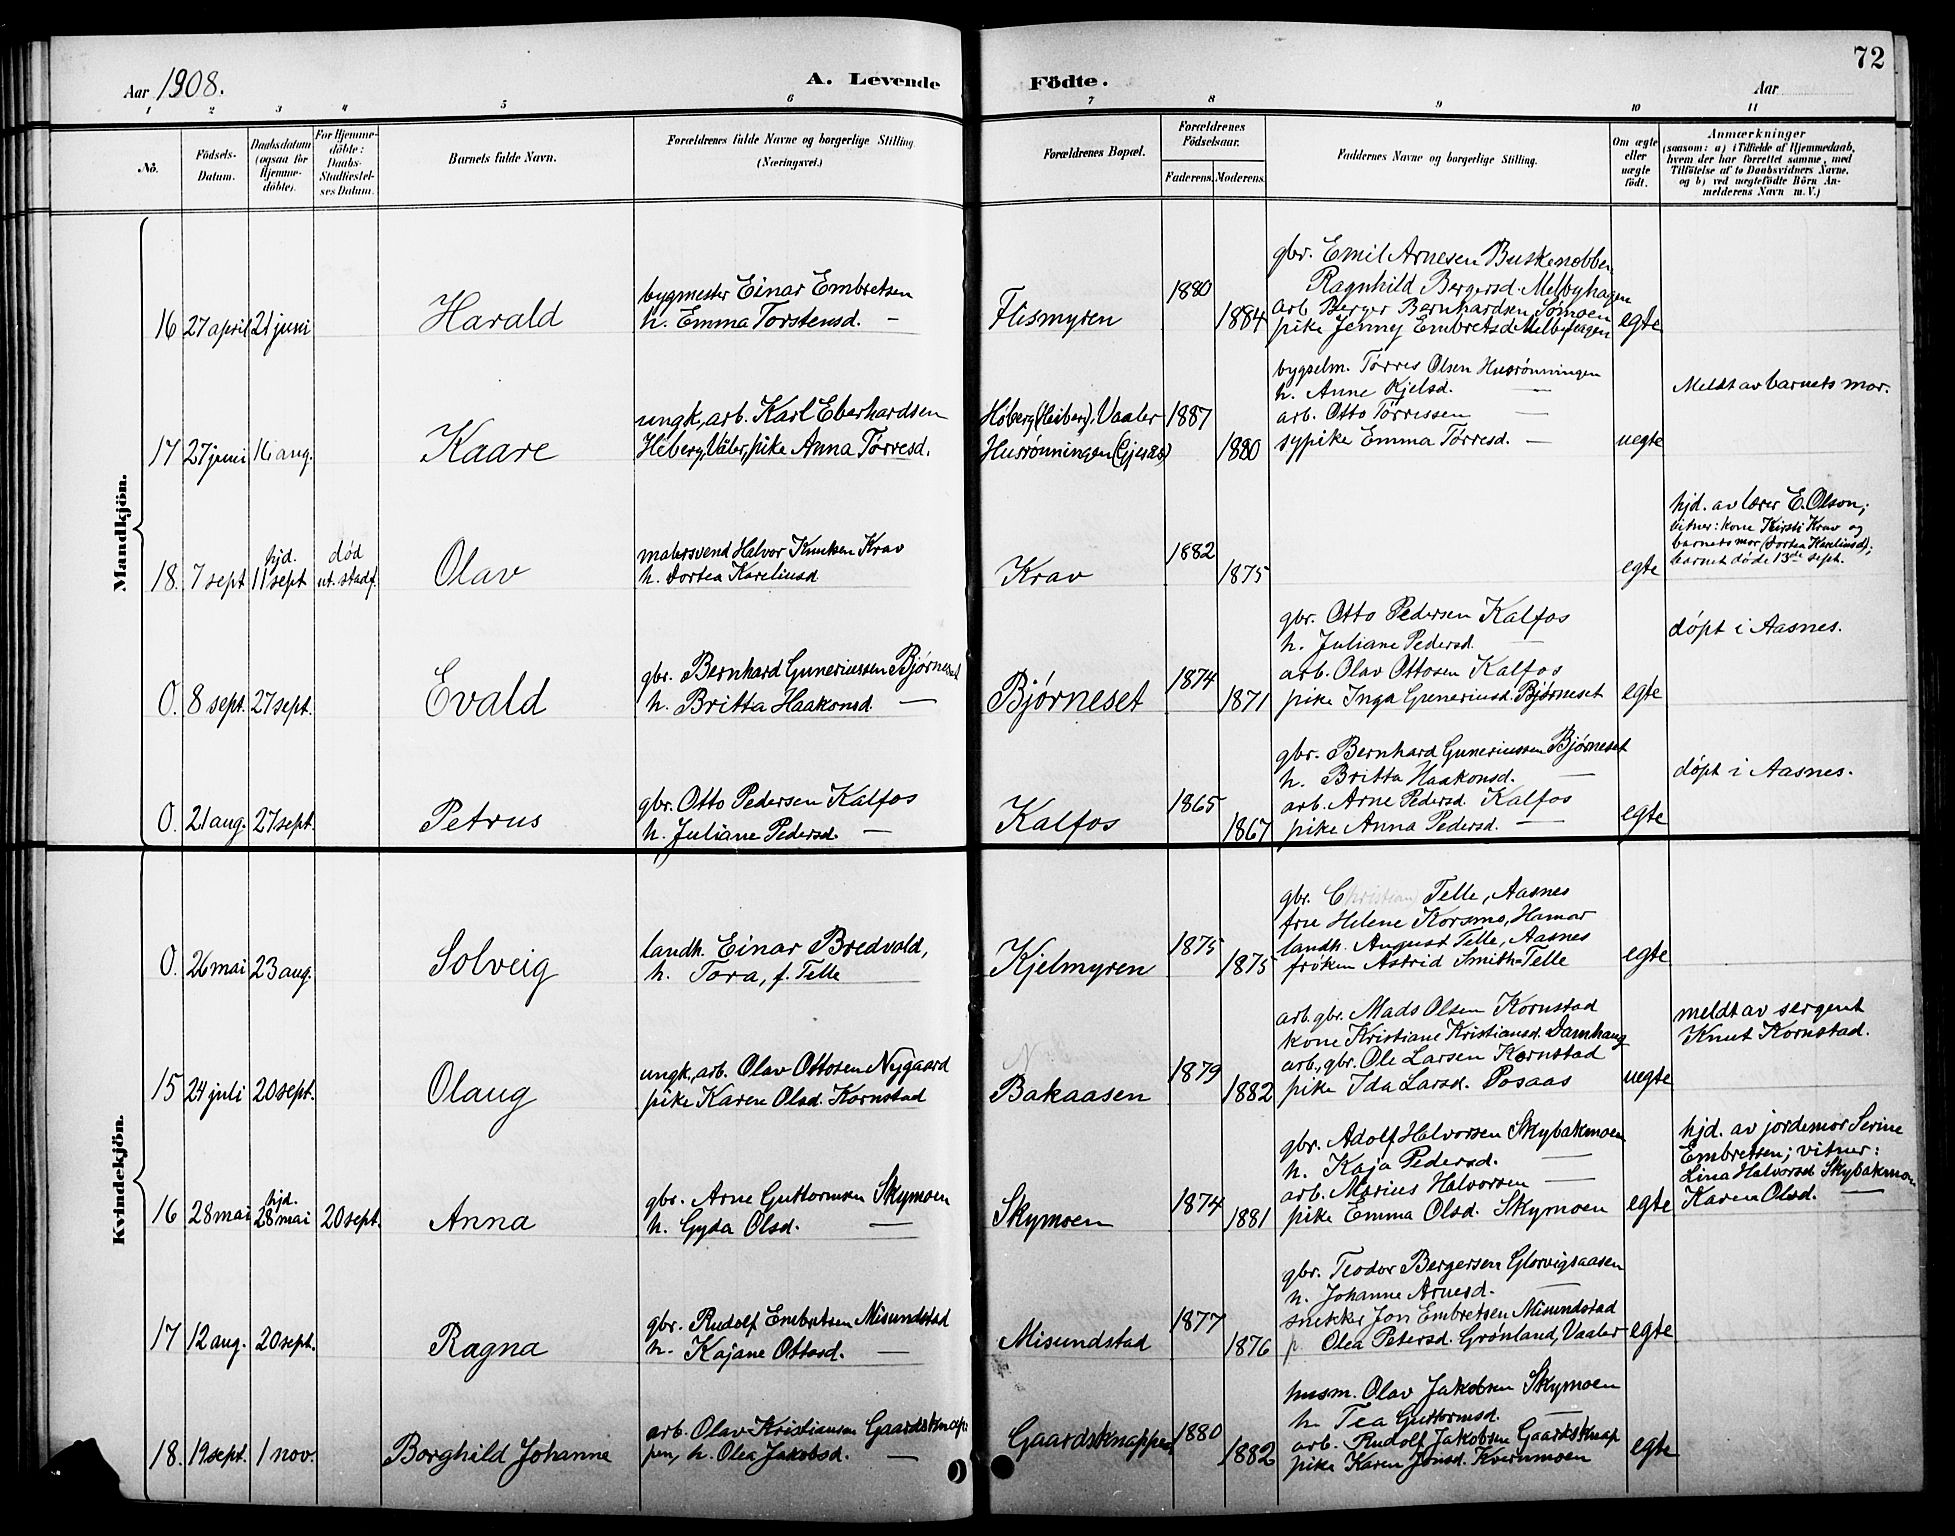 72
Aar 1908.
A. Levende Födte.
Aar
1 2 3 4 5 6 7 8 9 10 11
No.
Födsels-Datum.
Daabsdatum (ogsaa for Hjemme-döbte).
For Hjemme-döbte: Daabs-Stadfæstel-ses Datum.
Barnets fulde Navn.
Forældrenes fulde Navne og borgerlige Stilling (Næringsvei.)
Forældrenes Bopæl.
Forældrenes Födselsaar.
Faderens. Moderens.
Faddernes Navne og borgerlige Stilling.
Om ægte eller uægte födt.
Anmærkninger
(saasom: a) i Tilfælde af Hjemmedaab,
hvem der har forrettet samme, med
Tilföielse af to Daabsvidners Navne,
og b) ved uægtefödte Börn An-
melderens Navn m. V.)
Mandkjön.
16 27 april 21 juni
Harald
bygmester Einar Embretsen
h. Emma Torstensd. —
Flismyren
1880
1884
gbr. Emil Arnesen Buskenobben
Ragnhild Bergersd. Melbyhagen
arb. Berger Bernhardsen Sømoen
pike Jenny Embretsd. Melbyhagen
egte
17 27 juni 16 aug.
Kaare
ungk., arb. Karl Eberhardsen
Høberg, Våler, pike Anna Tørresd.
Høberg (Heiberg), Vaaler
Husrønningen (Gjesås)
1887
1880
bygselm. Tørres Olsen Husrønningen
h. Anne Kjelsd. —
arb. Otto Tørrissen —
sypike Emma Tørresd. —
uegte
Meldt av barnets mor.
18. 7 sept. hjd. 11 sept. død ut. stadf.
Olav
malersvend Halvor Knutsen Krav
h. Dortea Kareliusd.
Krav
1882
1875
egte
hjd. av lærer E. Olson;
vitner: kone Kirsti Krav og
barnets mor (Dortea Kareliusd);
barnet døde 13de sept.
0. 8 sept. 27 sept.
Evald
gbr. Bernhard Guneriussen Bjørneset
h. Britta Haakonsd. —
Bjørneset
1874
1871
gbr. Otto Pedersen Kalfos
h. Juliane Pedersd. —
arb. Olav Ottosen Kalfos
pike Inga Guneriusd. Bjørneset
egte
døpt i Aasnes.
0. 21 aug. 27 sept.
Petrus
gbr. Otto Pedersen Kalfos
h. Juliane Pedersd. —
Kalfos
1865
1867
gbr. Bernhard Guneriussen Bjørneset
h. Britta Haakonsd. —
arb. Arne Pedersd. Kalfos
pike Anna Pedersd. —
egte
døpt i Aasnes.
Kvindekjön.
0. 26 mai 23 aug.
Solveig
landh. Einar Bredvold,
h. Tora, f. Telle
Kjelmyren
1875
1875
gbr. Christian Telle, Aasnes
frue Helene Korsmo, Hamar
landh. August Telle, Aasnes
frøken Astrid Smith=Telle
egte
15 24 juli 20 sept.
Olaug
ungk., arb. Olav Ottosen Nygaard
pike Karen Olsd. Kornstad
Bakaasen
1879
1882
arb. gbr. Mads Olsen Kornstad
kone Kristiane Kristiansd. Damhaug
arb., gbr. Ole Larsen Kornstad
pike Ida Larsd. Posaas
uegte
meldt av sergent
Knut Kornstad.
16 28 mai hjd. 28 mai 20 sept.
Anna
gbr. Arne Guttormsen Skymoen
h. Gyda Olsd. —
Skymoen
1874
1881
gbr. Adolf Halvorsen Skybakmoen
h. Kaja Pedersd. —
arb. Marius Halvorsen —
pike Emma Olsd. Skymoen
egte
hjd. av jordemor Serine
Embretsen; vitner:
Lina Halvorsd. Skybakmoen
Karen Olsd. —
17 12 aug. 20 sept.
Ragna
gbr. Rudolf Embretsen Misundstad
h. Kajane Ottosd. —
Misundstad
1877
1876
gbr. Teodor Bergersen Glorvigsaasen
h. Johanne Arnesd. —
snekker Jon Embretsen Misundstad
p. Olea Petersd. Grønland, Vaaler
egte
18. 19 sept. 1 nov.
Borghild Johanne
arb. Olav Kristiansen Gaardsknap-
pen, h. Olea Jakobsd. —
Gaardsknappen
1880
1882
husm. Olav Jakobsen Skymoen
h. Tea Guttormsd. —
arb. Rudolf Jakobsen Gaardsknap
pike Karen Jonsd. Kvernmoen
egte